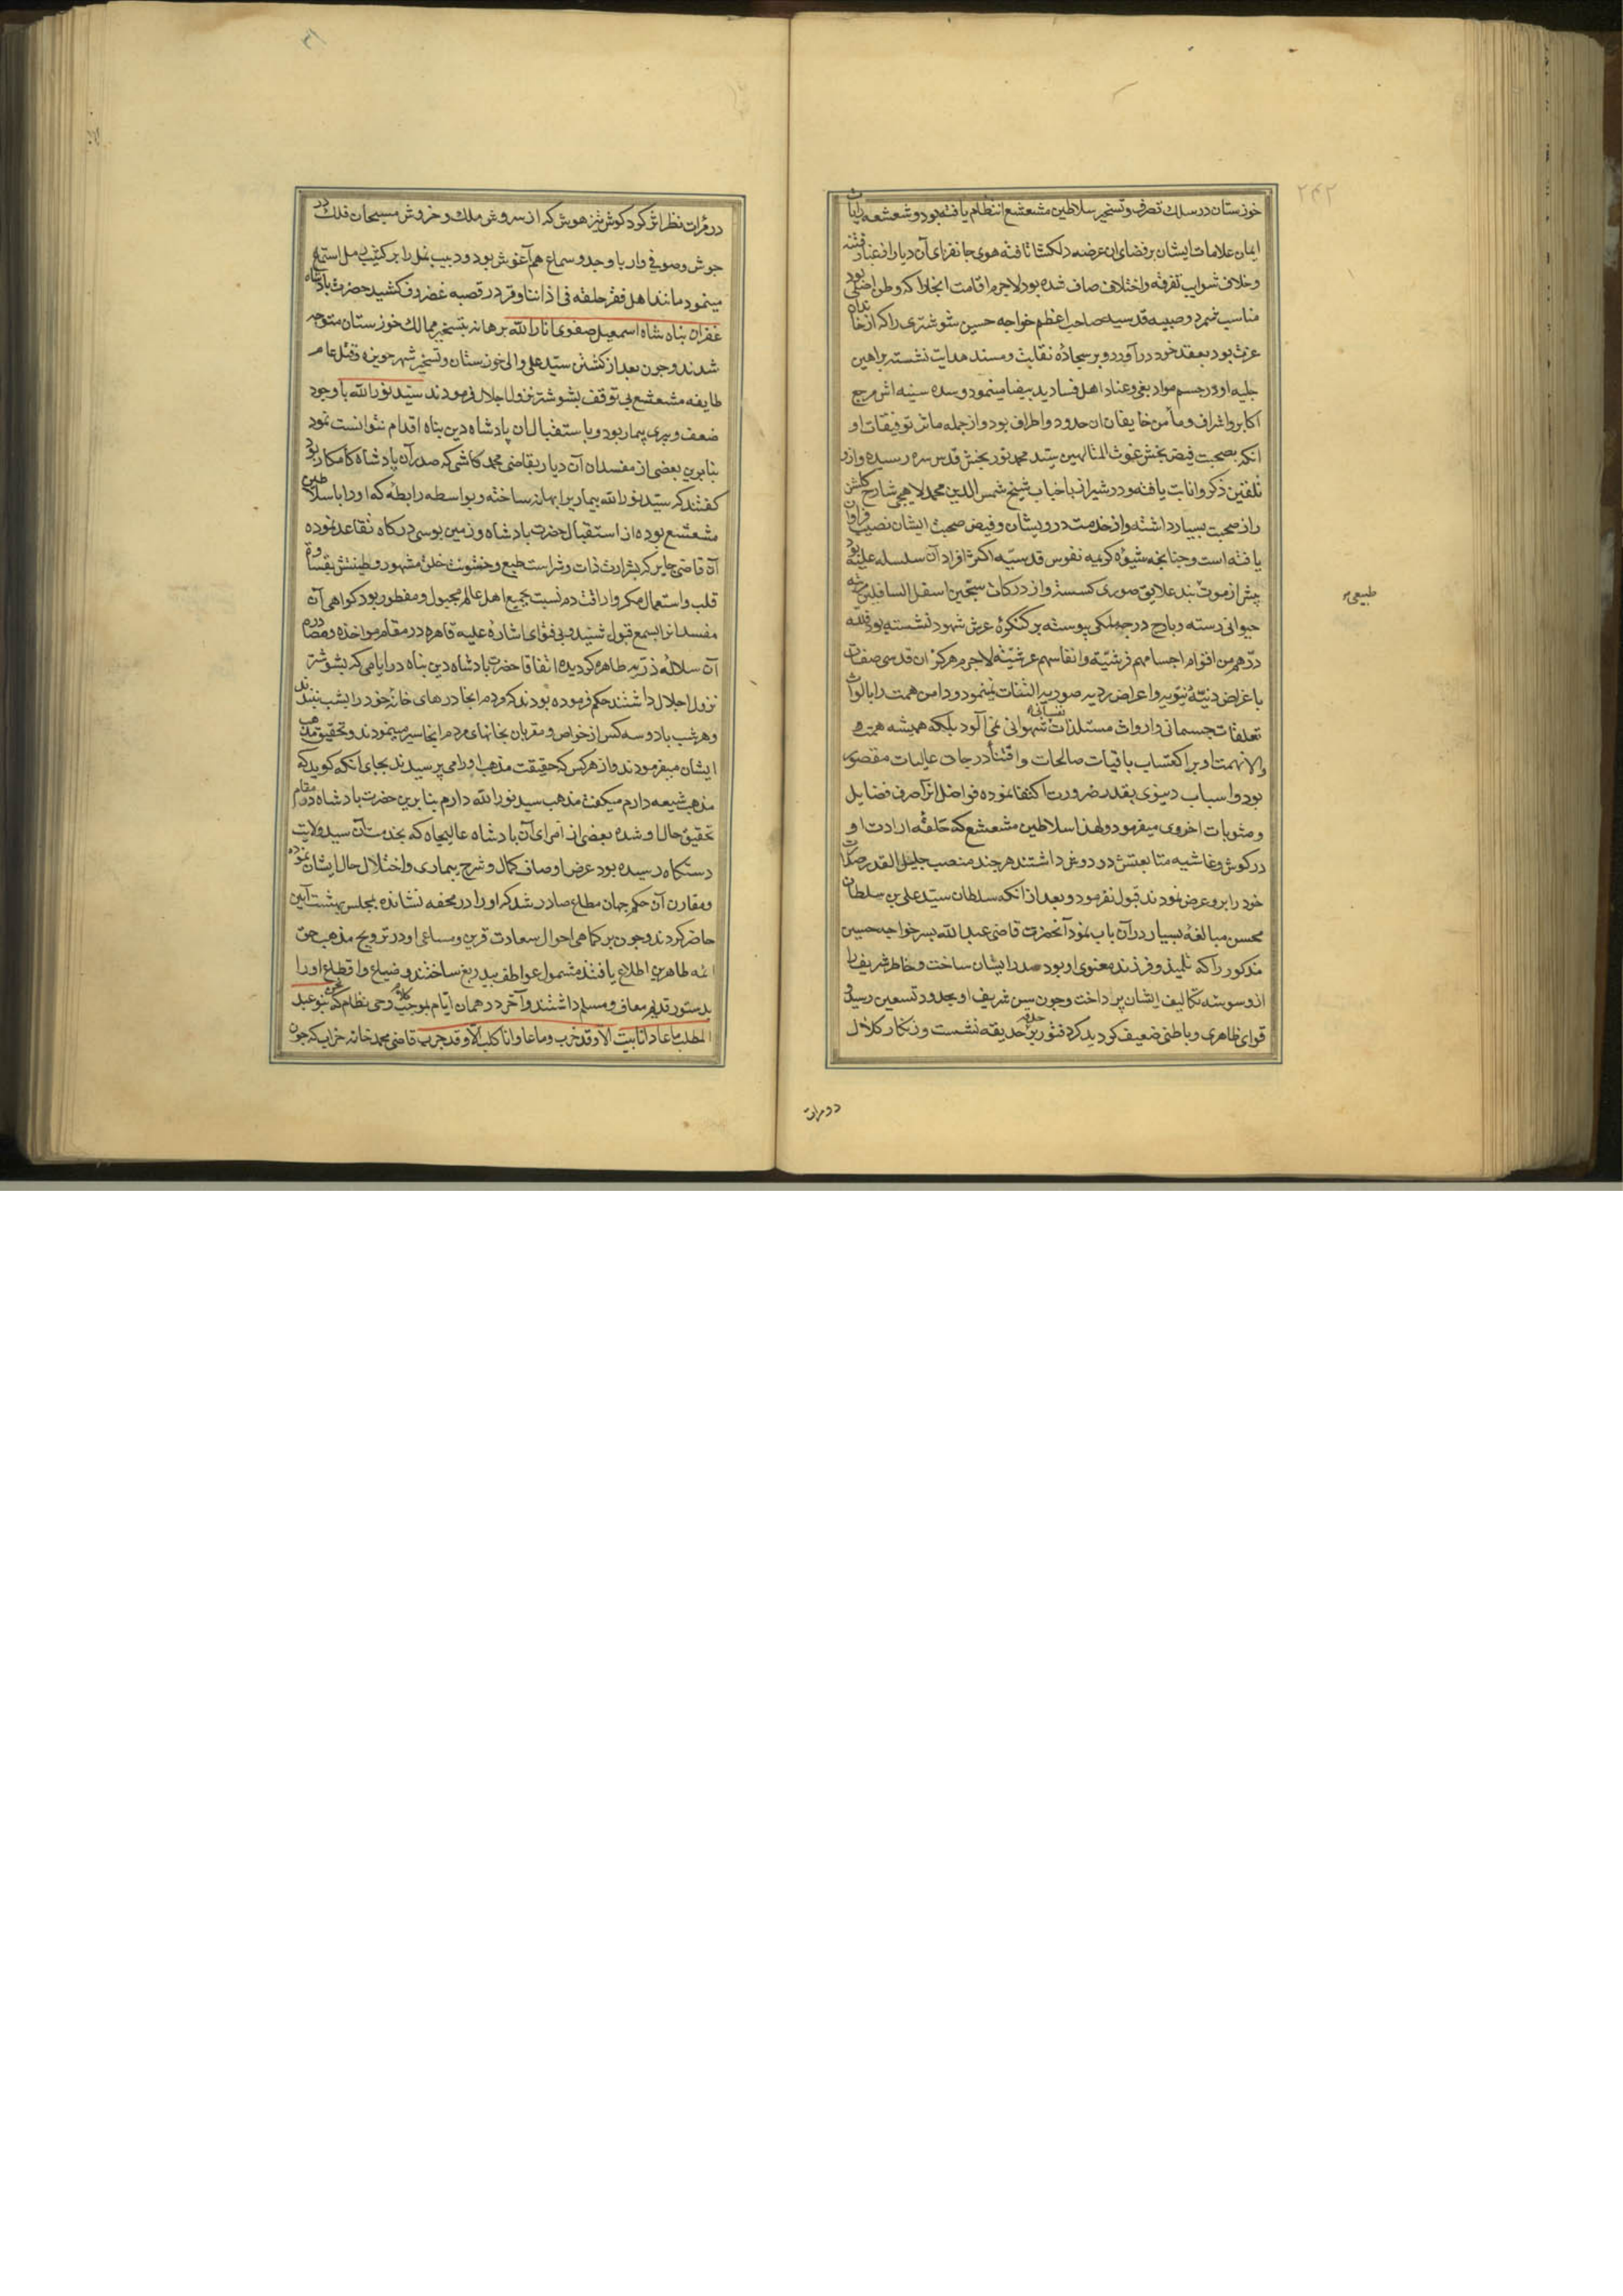 ۲۴۲
خوزستان در سلک تصرف و تسخیر سلاطین مشعشع انتظام یافته بود و شعشعه رایات
ایمان علامات ایشان بر فضای ان عرضه دلکشا تافته هوی جانفزای آن دیار از غبار فتنه
وخلاف شوایب تفرقه و اختلاف صاف شده بود لاجرم اقامت انجا را که وطن اصلی بود
مناسب شمرد و صبیه قدسیه صاحب اعظم خواجه حسین شوشتری را که از خاندان
عزت بود بعقد خود در آورد و بر سجادهٔ نقابت و مسند هدایت نشسته براهین
جلیه او در حسم مواد بغی و عناد اهل فساد ید بیضا مینمود و سده سینه اش مرجع
اکابر و اشراف و مأمن خایفان ان حدود و اطراف بود و از جمله ماثر توفیقات او
انکه بصحبت فیض بخش غوث المتالهین سید محمد نوربخش قدس سره رسیده و ازو
تلقین ذکر و انابت یافته و در شیراز با جناب شیخ شمس الدین محمد لاهیجی شارح کلشن
راز صحبت بسیار داشته و از خدمت درویشان و فیض صحبت ایشان نصیب فراوان
یافته است و چنانچه شیوهٔ کریمه نفوس قدسیّه اکثر افراد آن سلسله علیّه بود
پیش از موت بند علایق صوری کسسته و از درکات سجین اسفل السافلین
طبیعی
حیوانی رسته و بارج درجه ملکی پیوسته بر کنکرهٔ عرش شهود نشسته بود فلله
درّهم من اقوام اجسامهم فرشیّة و انفاسهم عرشیّة لاجرم هرکز ان قدسی صفات
با غراض دنیّهٔ دنیویه و اعراض ردیه صوریه التفات نمینمود و دامن همت را بالواث
تعلقات جسمانی و ارواث مستلذات نفسانی شهوانی نمی آلود بلکه همیشه همت
والا نهمت او بر اکتساب باقیات صالحات و اقتناء درجات عالیات مقصور
بود و اسباب دنیوی بقدر ضرورت اکتفا نموده فواضل انرا صرف فضایل
و مثوبات اخروی میفرمود و لهذا سلاطین مشعشع که حلقهٔ ارادت او
در کوش و غاشیه متابعتش در دوش داشتند هرچند منصب جلیل القدر صدارت
خود را برو عرض نمودند قبول نفرمود و بعد از انکه سلطان سید علی بن سلطان
محسن مبالغهٔ بسیار در آن باب نمود آنحضرت قاضی عبد الله پسر خواجه حسین
مذکور را که تلمیذ و فرزند معنوی او بود صدر ایشان ساخت و خاطر شریف را
از وسوسه تکالیف ایشان پرداخت و چون سن شریف او بحدود تسعین رسید و
قوای ظاهری و باطنی ضعیف کردید کرد فتور بر حدیقه نشست و زنکار کلال
در مرات
در مرات نظر اثر کرد کوش تیز هوش که از سروش ملک و خروش مسبحان فلک در
جوش و صوفی وار با وجد و سماع هم آغوش بود و دبیب نمل را بر کثیب رمل استماع
مینمود مانند اهل فقر حلقه فی اذاننا وقر در قصبه غضروف کشید حضرت پادشاه
غفران پناه شاه اسمعیل صفوی انار الله برهانه بتسخیر ممالک خوزستان متوجه
شدند و چون بعد از کشتن سید علی والی خوزستان و تسخیر شهر حویزه و قتل عام
طایفه مشعشع بی توقف بشوشتر نزول اجلال فرمودند سید نور الله با وجود
ضعف و پیری بیمار بود و باستقبال ان پادشاه دین پناه اقدام نتوانست نمود
بنابرین بعضی از مفسدان آن دیار بقاضی محمد کاشی که صدر آن پادشاه کامکار بود
کفتند که سید نور الله بیماری را بهانه ساخته و بواسطه رابطهٔ که او را با سلاطین
مشعشع بوده از استقبال حضرت پادشاه و زمین بوسی درکاه تقاعد نموده
آن قاضی جایر که بشرارت ذات و شراست طبع و خشونت خلق مشهور و طینتش بقساوة
قلب و استعمال مکر و اراقت دم نسبت بجمیع اهل عالم مجبول و مفطور بود کواهی آن
مفسدانرا بسمع قبول شنید و بی فتوای اشارهٔ علیه قاهره در مقام مواخذه و مصادرهٔ
آن سلالهٔ ذریه طاهره کردیده اتفاقا حضرت پادشاه دین پناه در ایامی که بشوشتر
نزول اجلال داشتند حکم فرموده بودند که مردم انجا درهای خانهٔ خود را بشب نبندند
و هر شب با دو سه کس از خواص و مقربان بخانهای مردم انجا سیر مینمودند و تحقیق مذهب
ایشان میفرمودند و از هر کس که حقیقت مذهب او را می پرسیدند بجای انکه کوید که
مذهب شیعه دارم میکفت مذهب سید نور الله دارم بنابرین حضرت پادشاه در مقام
تحقیق حال او شده بعضی از امرای آن پادشاه عالیجاه که بخدمت آن سید ولایت
دستکاه رسیده بود عرض اوصاف کمال و شرح بیماری و اختلال حال ایشان نموده
و مقارن آن حکم جهان مطاع صادر شد که او را در محفه نشانده بمجلس بهشت آیین
حاضر کردند و چون بر کماهی احوال سعادت قرین و مساعی او در ترویج مذهب حق
ائمه طاهرین اطلاع یافتند مشمول عواطف بیدریغ ساختند و ضیاع و اقطاع او را
بدستور قدیم معاف و مسلم داشتند و آخر در همان ایام بموجب کلام وحی نظام که نحن بنو عبد
المطلب ما عادانا بیت الا و قد خرب و ما عاوانا کلب الا و قد جرب قاضی محمد خانه خراب که چون